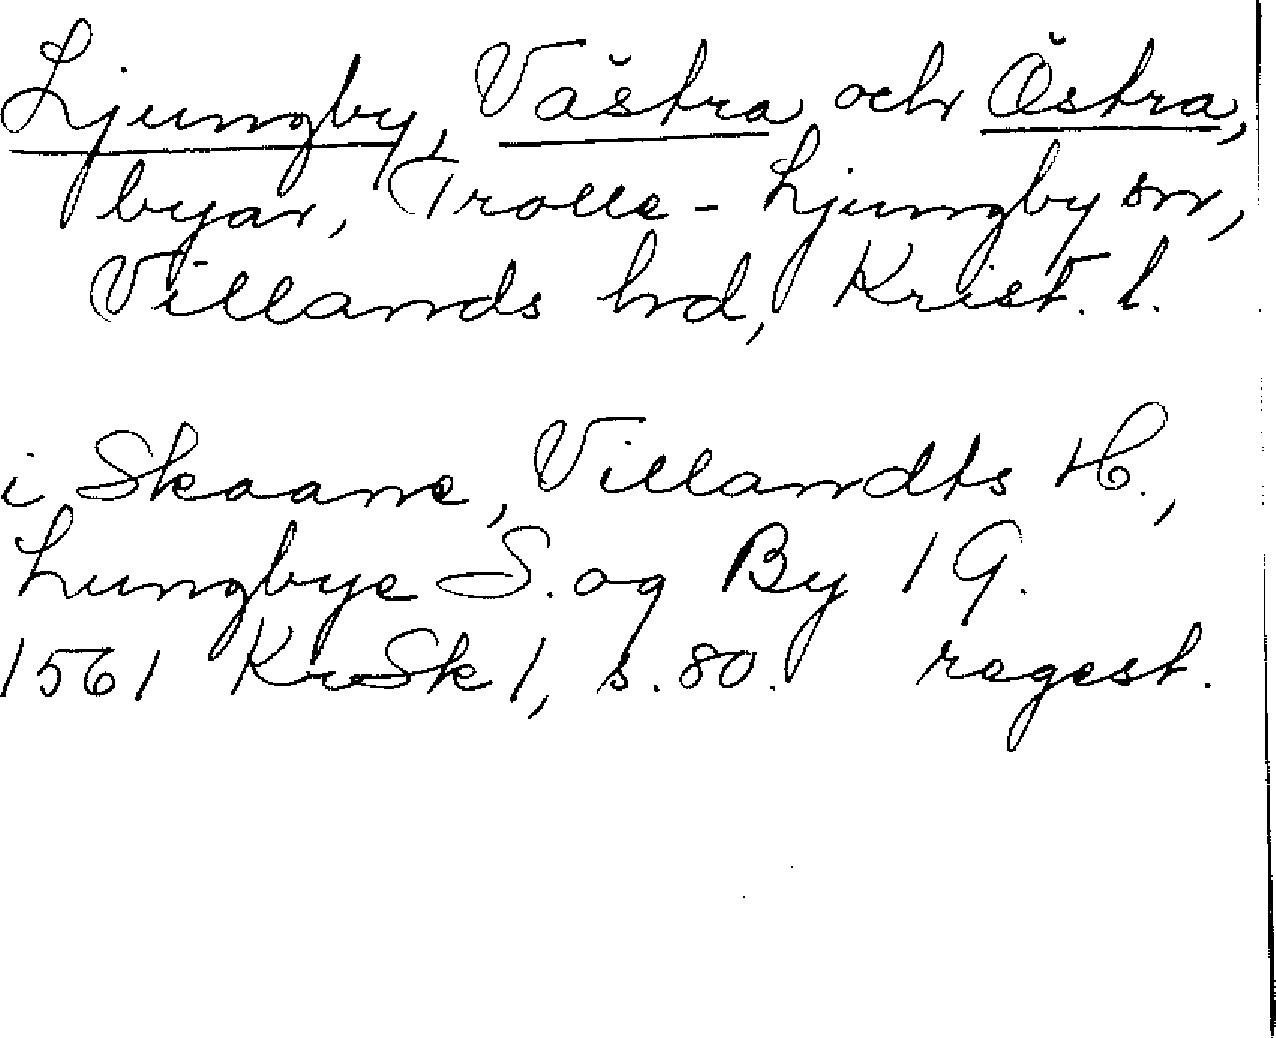 Ljungby, Västra och Östra,
byar, Trolle-Ljungby sn,
Villands hd, Krist. l.
i Skaane, Villandts H.,
Lungbye S. og By 1 G.
1561 KrSk 1, s. 80. regest.